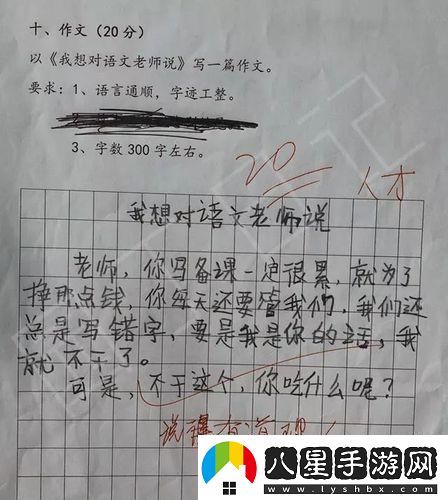 十、作文(20分)
以《我想对语文老师说》写一篇作文。
要求：1、语言通顺，字迹工整。
3、字数300字左右。
20
人才
我想对语文老师说
老师，你写备课一定很累，就为了
挣那点钱，你每天还要管我们，我们还
总是写错字，要是我是你的话，我
就不干了。
可是，不干这个，你吃什么呢？
说得有道理！
八星手游网
www.lyshbx.com